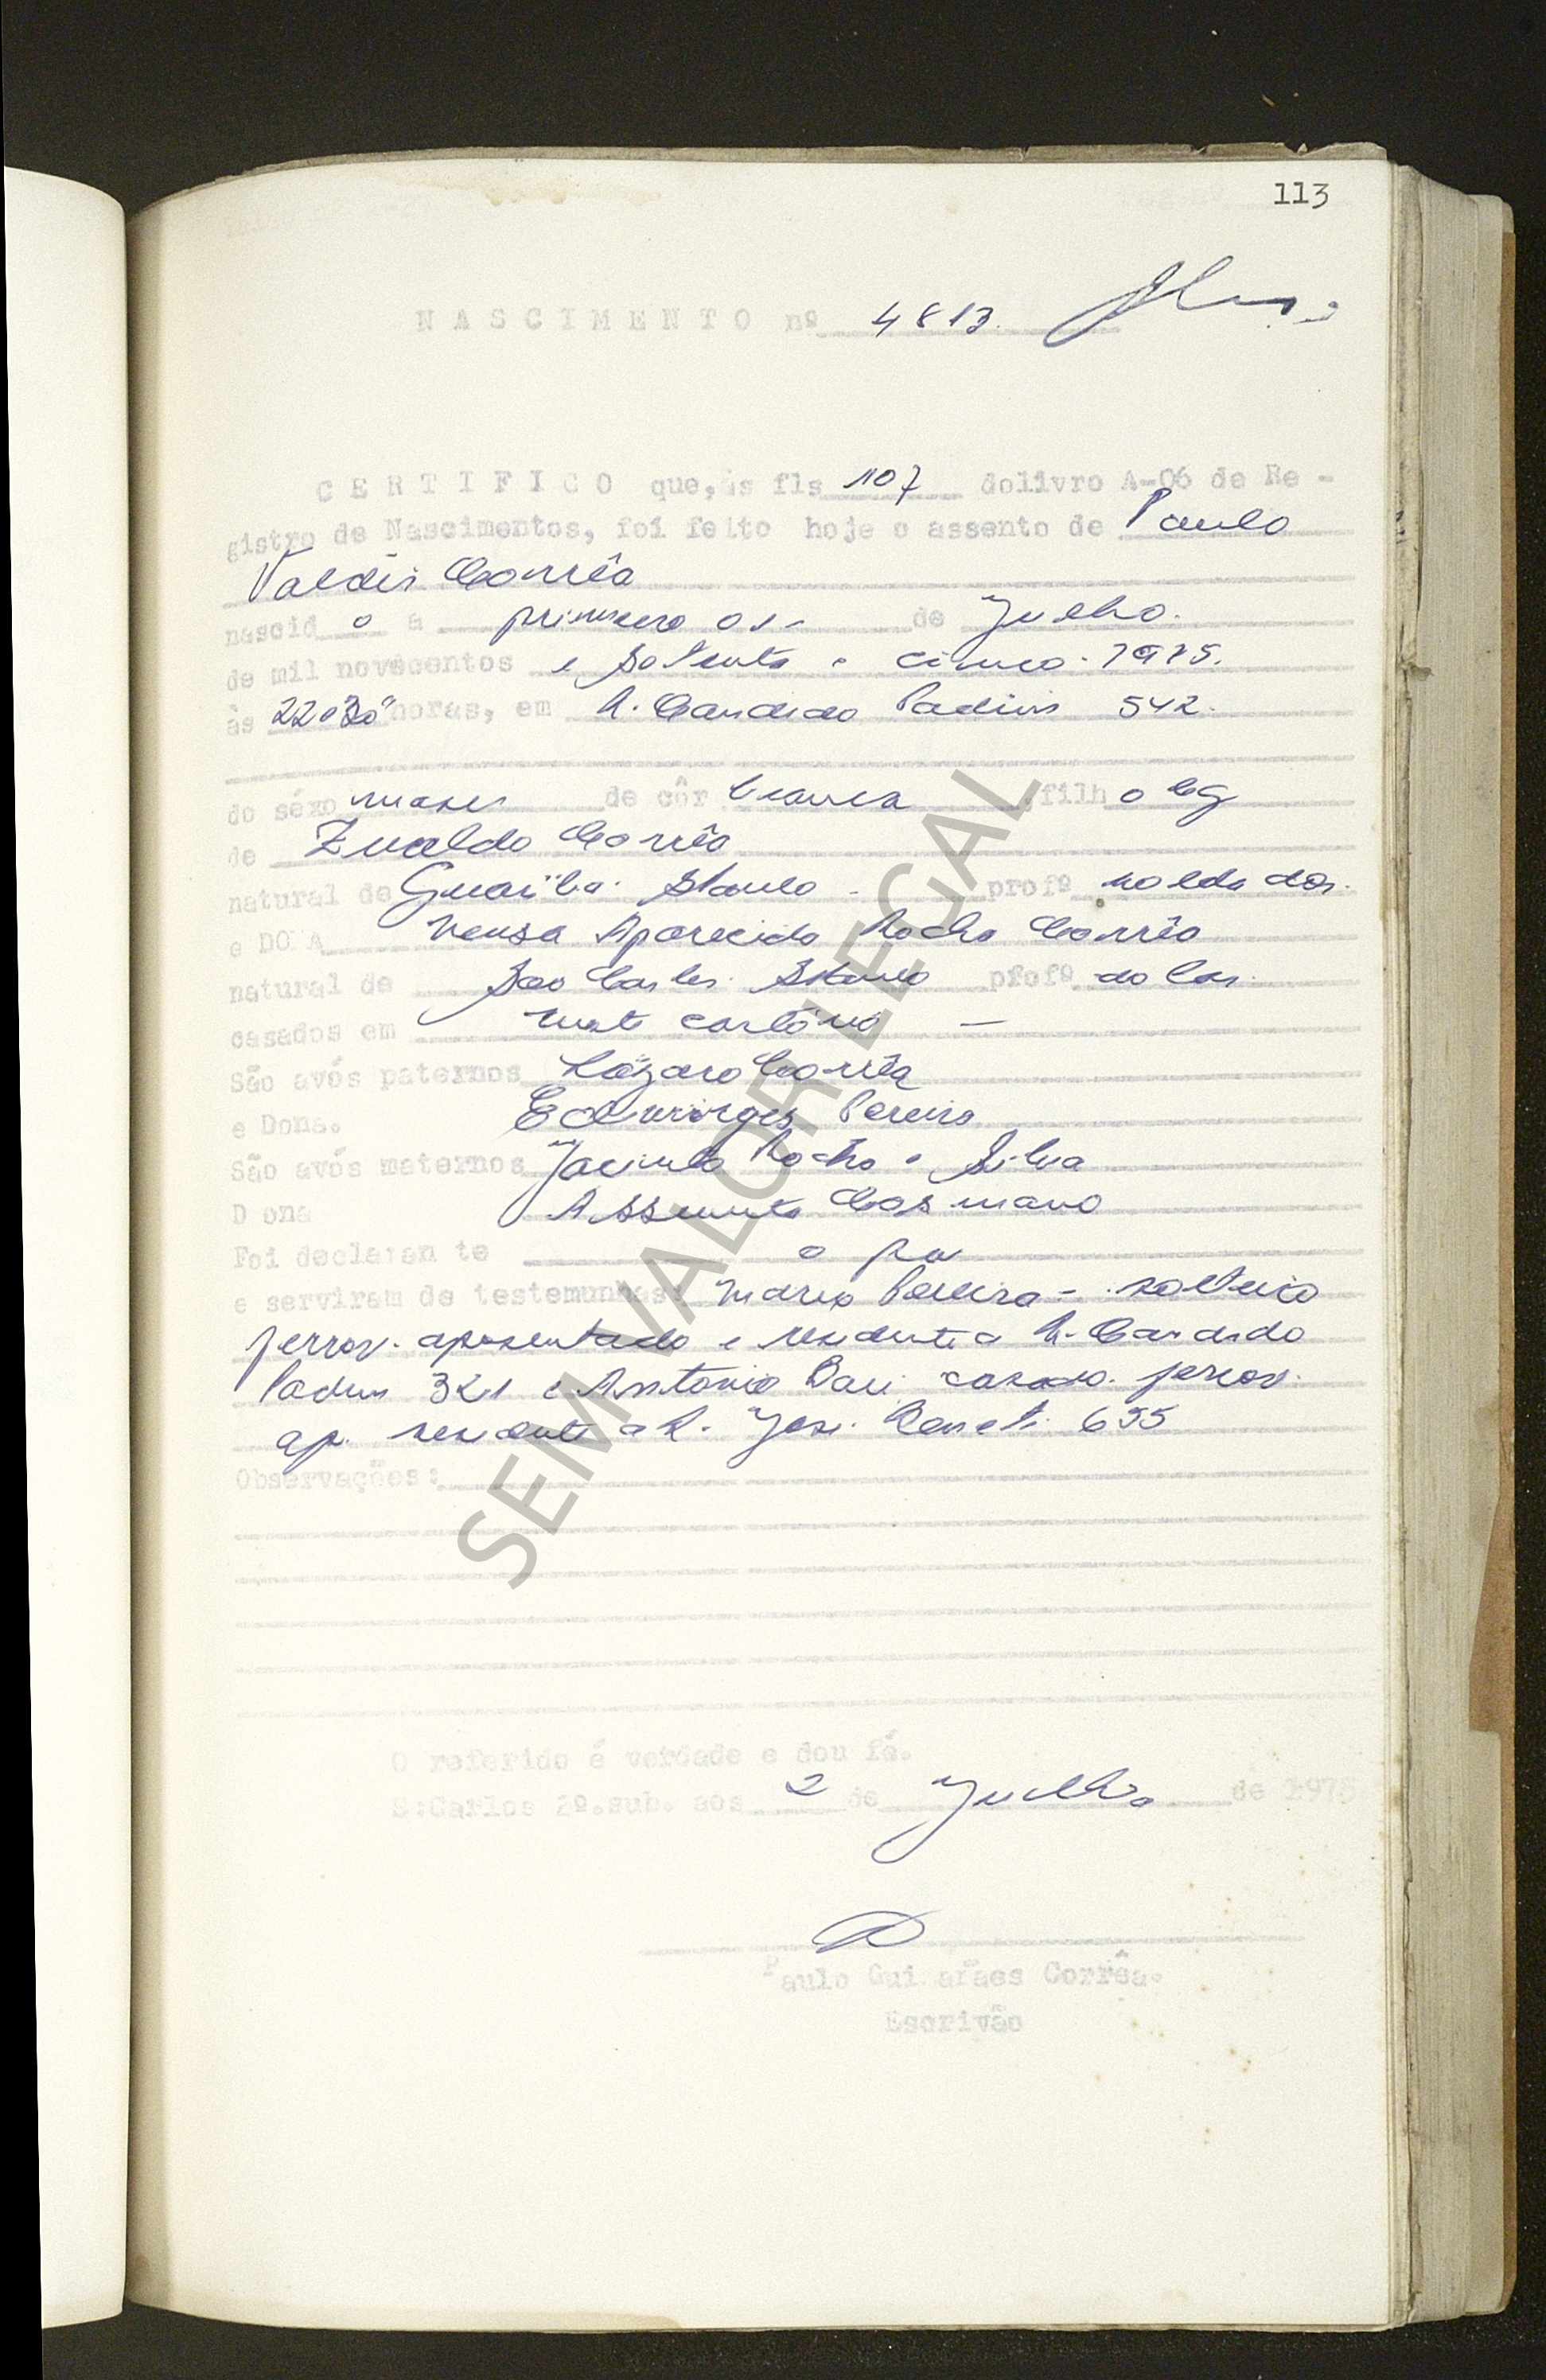 113
NASCIMENTO nº 4813.
CERTIFICO que, às fls 107 dolivro A-06 de Re -
gistro de Nascimentos, foi feito hoje o assento de Paulo
Valdir Corrêa
nascid o a primeiro de Julho.
de mil novecentos e setenta e cinco. 1975.
às horas, em R. Candido Padim 542.
do séxo masc de côr branca filh o lg
de Corrêa
natural de Guariba. SPaulo. profº soldador.
e DONA Neusa Aparecida Rocha Corrêa
natural de São Carlos. SPaulo profº do lar.
casados em neste cartório —
São avós paternos Lázaro Corrêa
e Dona. Edwirges Pereira
São avós maternos Jacinto Rocha e Silva
Dona Assunta Cosmano
Foi declaran te o pai
e serviram de testemunhas: Mario Pereira - solteiro
ferrov. aposentado e residente a R. Candido
Padim 321 e Antonio casado. ferrov.
ap. residente a R. José 655
Observações:
O referido é verdade e dou fé.
S:Carlos 2º.sub. aos 2 de Julho de 1975
Paulo Guimarães Corrêa.
Escrivão
SEM VALOR LEGAL